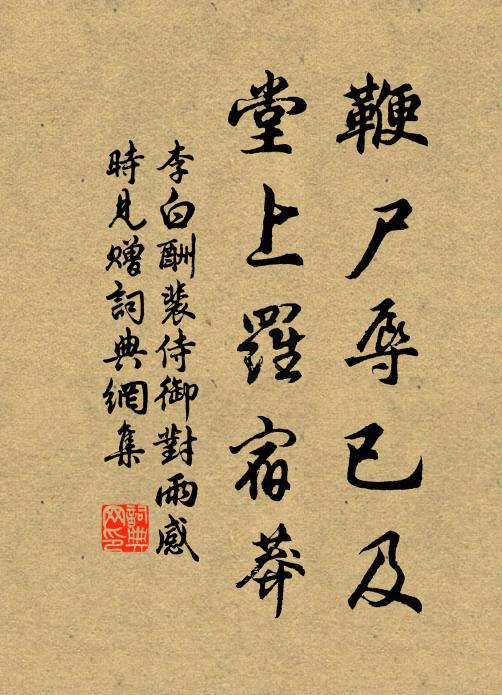 鞭尸辱已及
堂上羅宿莽
李白酬裴侍御對雨感
時見贈詞典網集
詞典
网印